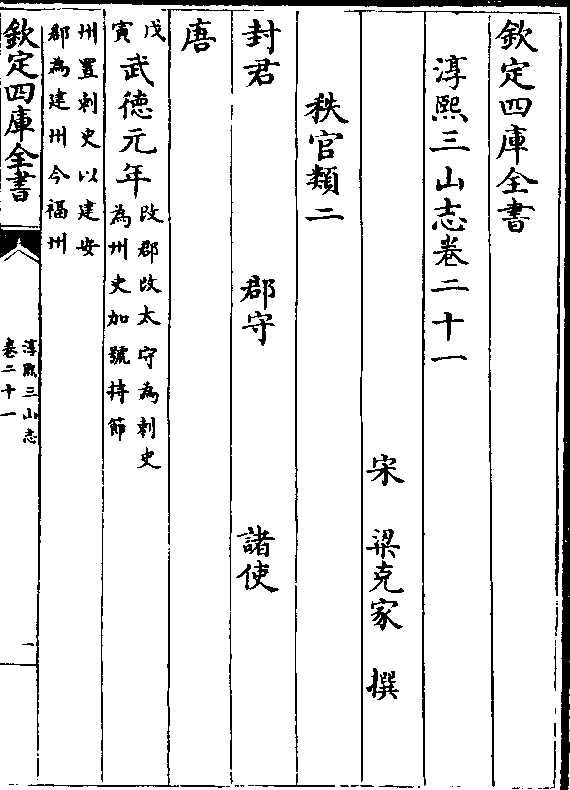 欽定四庫全書
淳熙三山志卷二十一
宋 梁克家 撰
秩官類二
封君 郡守 諸使
唐
戊寅 武德元年 改郡改太守為刺史
為州史加號持節
州置刺史以建安
郡為建州今福州
欽定四庫全書
淳熙三山志
卷二十一
一